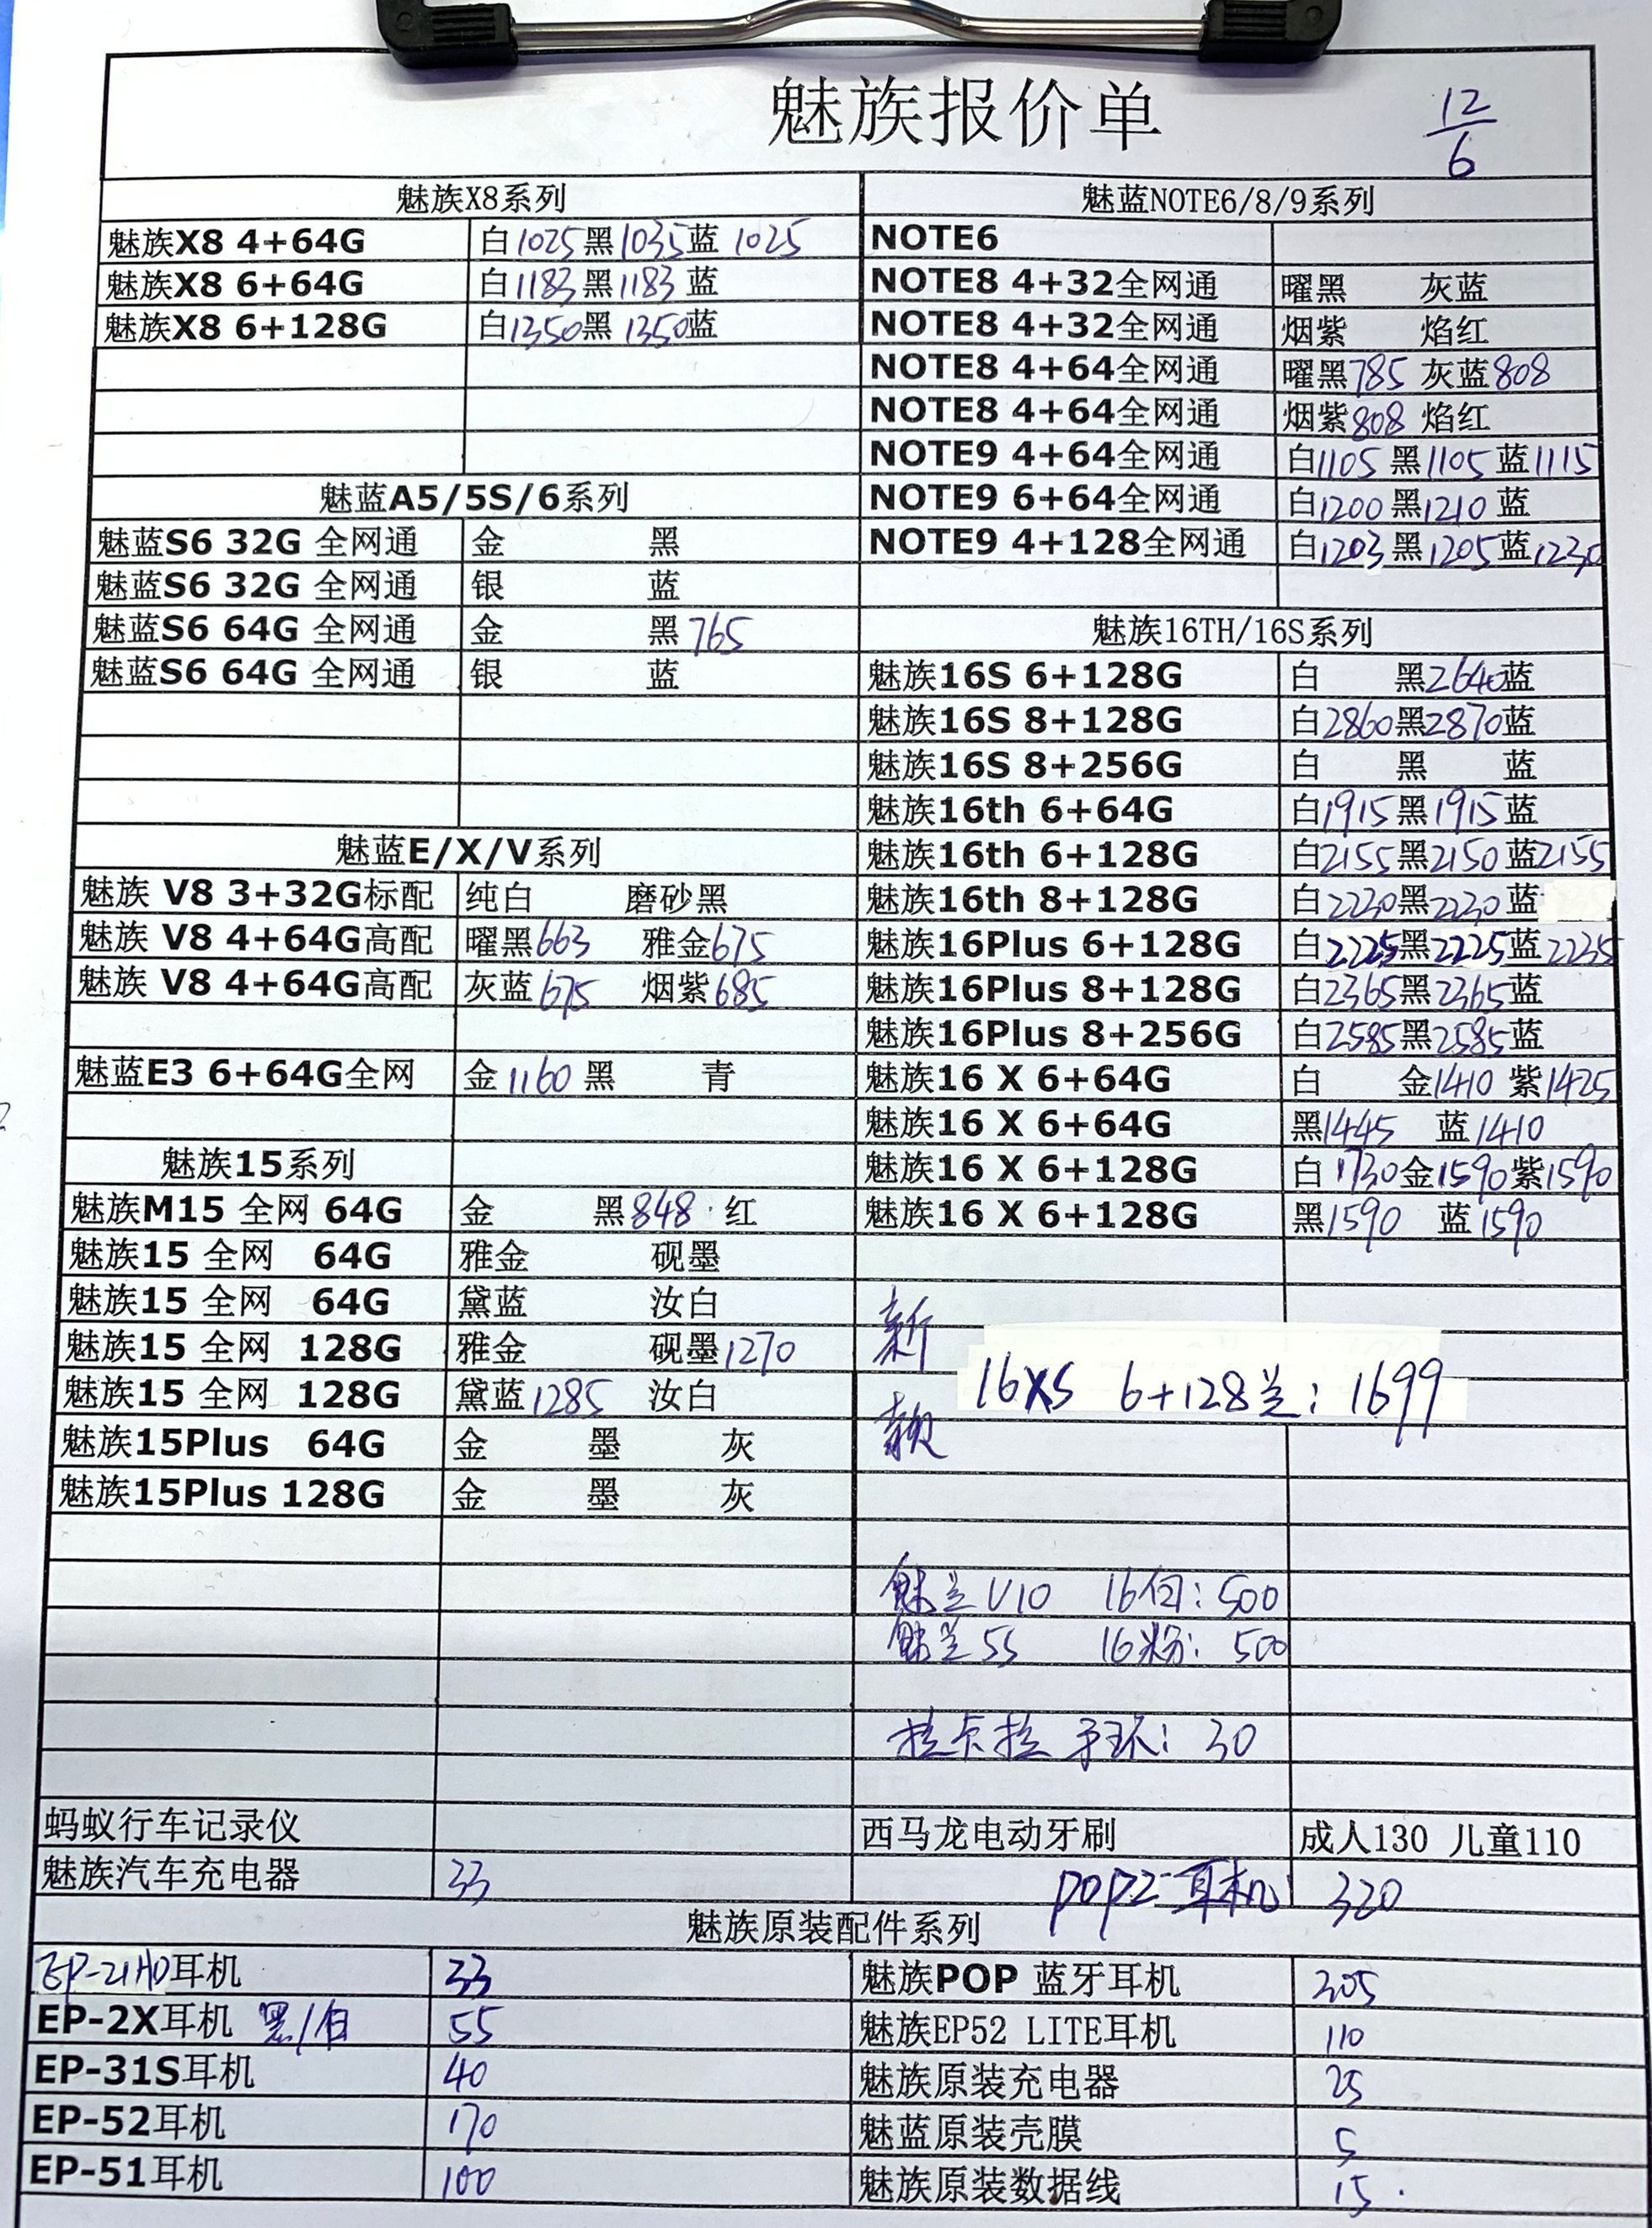 魅族报价单
12/6
魅族X8系列
魅族X8 4+64G 白1025黑1035蓝1025
魅族X8 6+64G 白1183黑1183蓝
魅族X8 6+128G 白1350黑1350蓝
魅蓝A5/5S/6系列
魅蓝S6 32G 全网通 金 黑
魅蓝S6 32G 全网通 银 蓝
魅蓝S6 64G 全网通 金 黑765
魅蓝S6 64G 全网通 银 蓝
魅蓝E/X/V系列
魅族 V8 3+32G标配 纯白 磨砂黑
魅族 V8 4+64G高配 曜黑663 雅金675
魅族 V8 4+64G高配 灰蓝675 烟紫685
魅蓝E3 6+64G全网 金1160 黑 青
魅族15系列
魅族M15 全网 64G 金 黑848 红
魅族15 全网 64G 雅金 砚墨
魅族15 全网 64G 黛蓝 汝白
魅族15 全网 128G 雅金 砚墨1270
魅族15 全网 128G 黛蓝1285 汝白
魅族15Plus 64G 金 墨 灰
魅族15Plus 128G 金 墨 灰
魅蓝NOTE6/8/9系列
NOTE6
NOTE8 4+32全网通 曜黑 灰蓝
NOTE8 4+32全网通 烟紫 焰红
NOTE8 4+64全网通 曜黑785 灰蓝808
NOTE8 4+64全网通 烟紫808 焰红
NOTE9 4+64全网通 白1105 黑1105 蓝1115
NOTE9 6+64全网通 白1200 黑1210 蓝
NOTE9 4+128全网通 白1203 黑1205 蓝1230
魅族16TH/16S系列
魅族16S 6+128G 白 黑2640蓝
魅族16S 8+128G 白2860黑2870蓝
魅族16S 8+256G 白 黑 蓝
魅族16th 6+64G 白1915黑1915蓝
魅族16th 6+128G 白2155黑2150蓝2155
魅族16th 8+128G 白2230黑2230蓝
魅族16Plus 6+128G 白2225黑2225蓝2235
魅族16Plus 8+128G 白2365黑2365蓝
魅族16Plus 8+256G 白2585黑2585蓝
魅族16 X 6+64G 白 金1410 紫1425
魅族16 X 6+64G 黑1445 蓝1410
魅族16 X 6+128G 白1730金1590紫1590
魅族16 X 6+128G 黑1590 蓝1590
新款
16XS 6+128兰: 1699
魅兰V10 16白: 500
魅兰5S 16粉: 500
拉卡拉 手环: 30
蚂蚁行车记录仪 西马龙电动牙刷 成人130 儿童110
魅族汽车充电器 33 pop2耳机 320
魅族原装配件系列
EP-21HD耳机 33 魅族POP 蓝牙耳机 305
EP-2X耳机 黑/白 55 魅族EP52 LITE耳机 110
EP-31S耳机 40 魅族原装充电器 25
EP-52耳机 170 魅蓝原装壳膜 5
EP-51耳机 100 魅族原装数据线 15